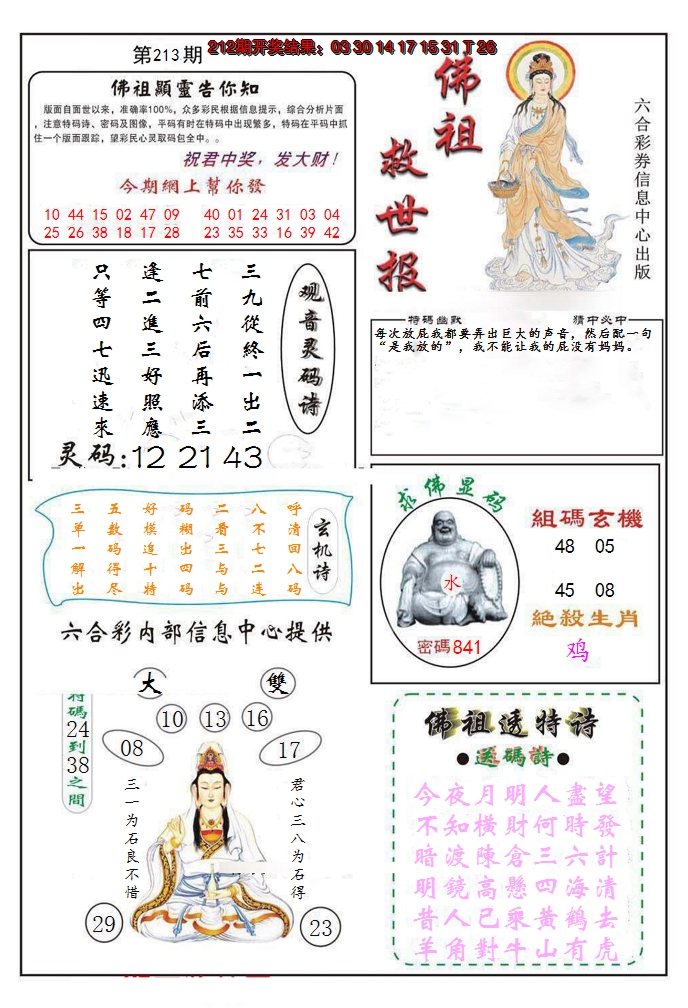 第213期
212期开奖结果：03 30 14 17 15 31 丁 26
佛祖顯靈告你知
版面自面世以来，准确率100%，众多彩民根据信息提示，综合分析片面
，注意特码诗、密码及图像，平码有时在特码中出现繁多，特码在平码中抓
住一个版面跟踪，望彩民心灵取码包全中。。
祝君中奖，发大财！
今期網上幫你發
10 44 15 02 47 09 40 01 24 31 03 04
25 26 38 18 17 28 23 35 33 16 39 42
佛祖
救世报
六合彩券信息中心出版
观音灵码诗
三九從終一出二
七前六后再添三
逢二進三好照應
只等四七迅速來
灵码:12 21 43
特碼幽默 猜中必中
每次放屁我都要弄出巨大的声音，然后配一句
“是我放的”，我不能让我的屁没有妈妈。
玄机诗
呼清回八码
八不七二连
二看三与与
码糊出四码
好模追十特
五数码得尽
三单一解出
六合彩内部信息中心提供
求佛显码
水
密碼841
組碼玄機
48 05
45 08
絶殺生肖
鸡
大 雙
特碼24到38之間
10 13 16
08 17
三一为石良不惜
君心三八为石得
29 23
佛祖透特诗
●送碼詩●
今夜月明人盡望
不知橫財何時發
暗渡陳倉三六計
明鏡高懸四海清
昔人已乘黄鶴去
羊角對牛山有虎